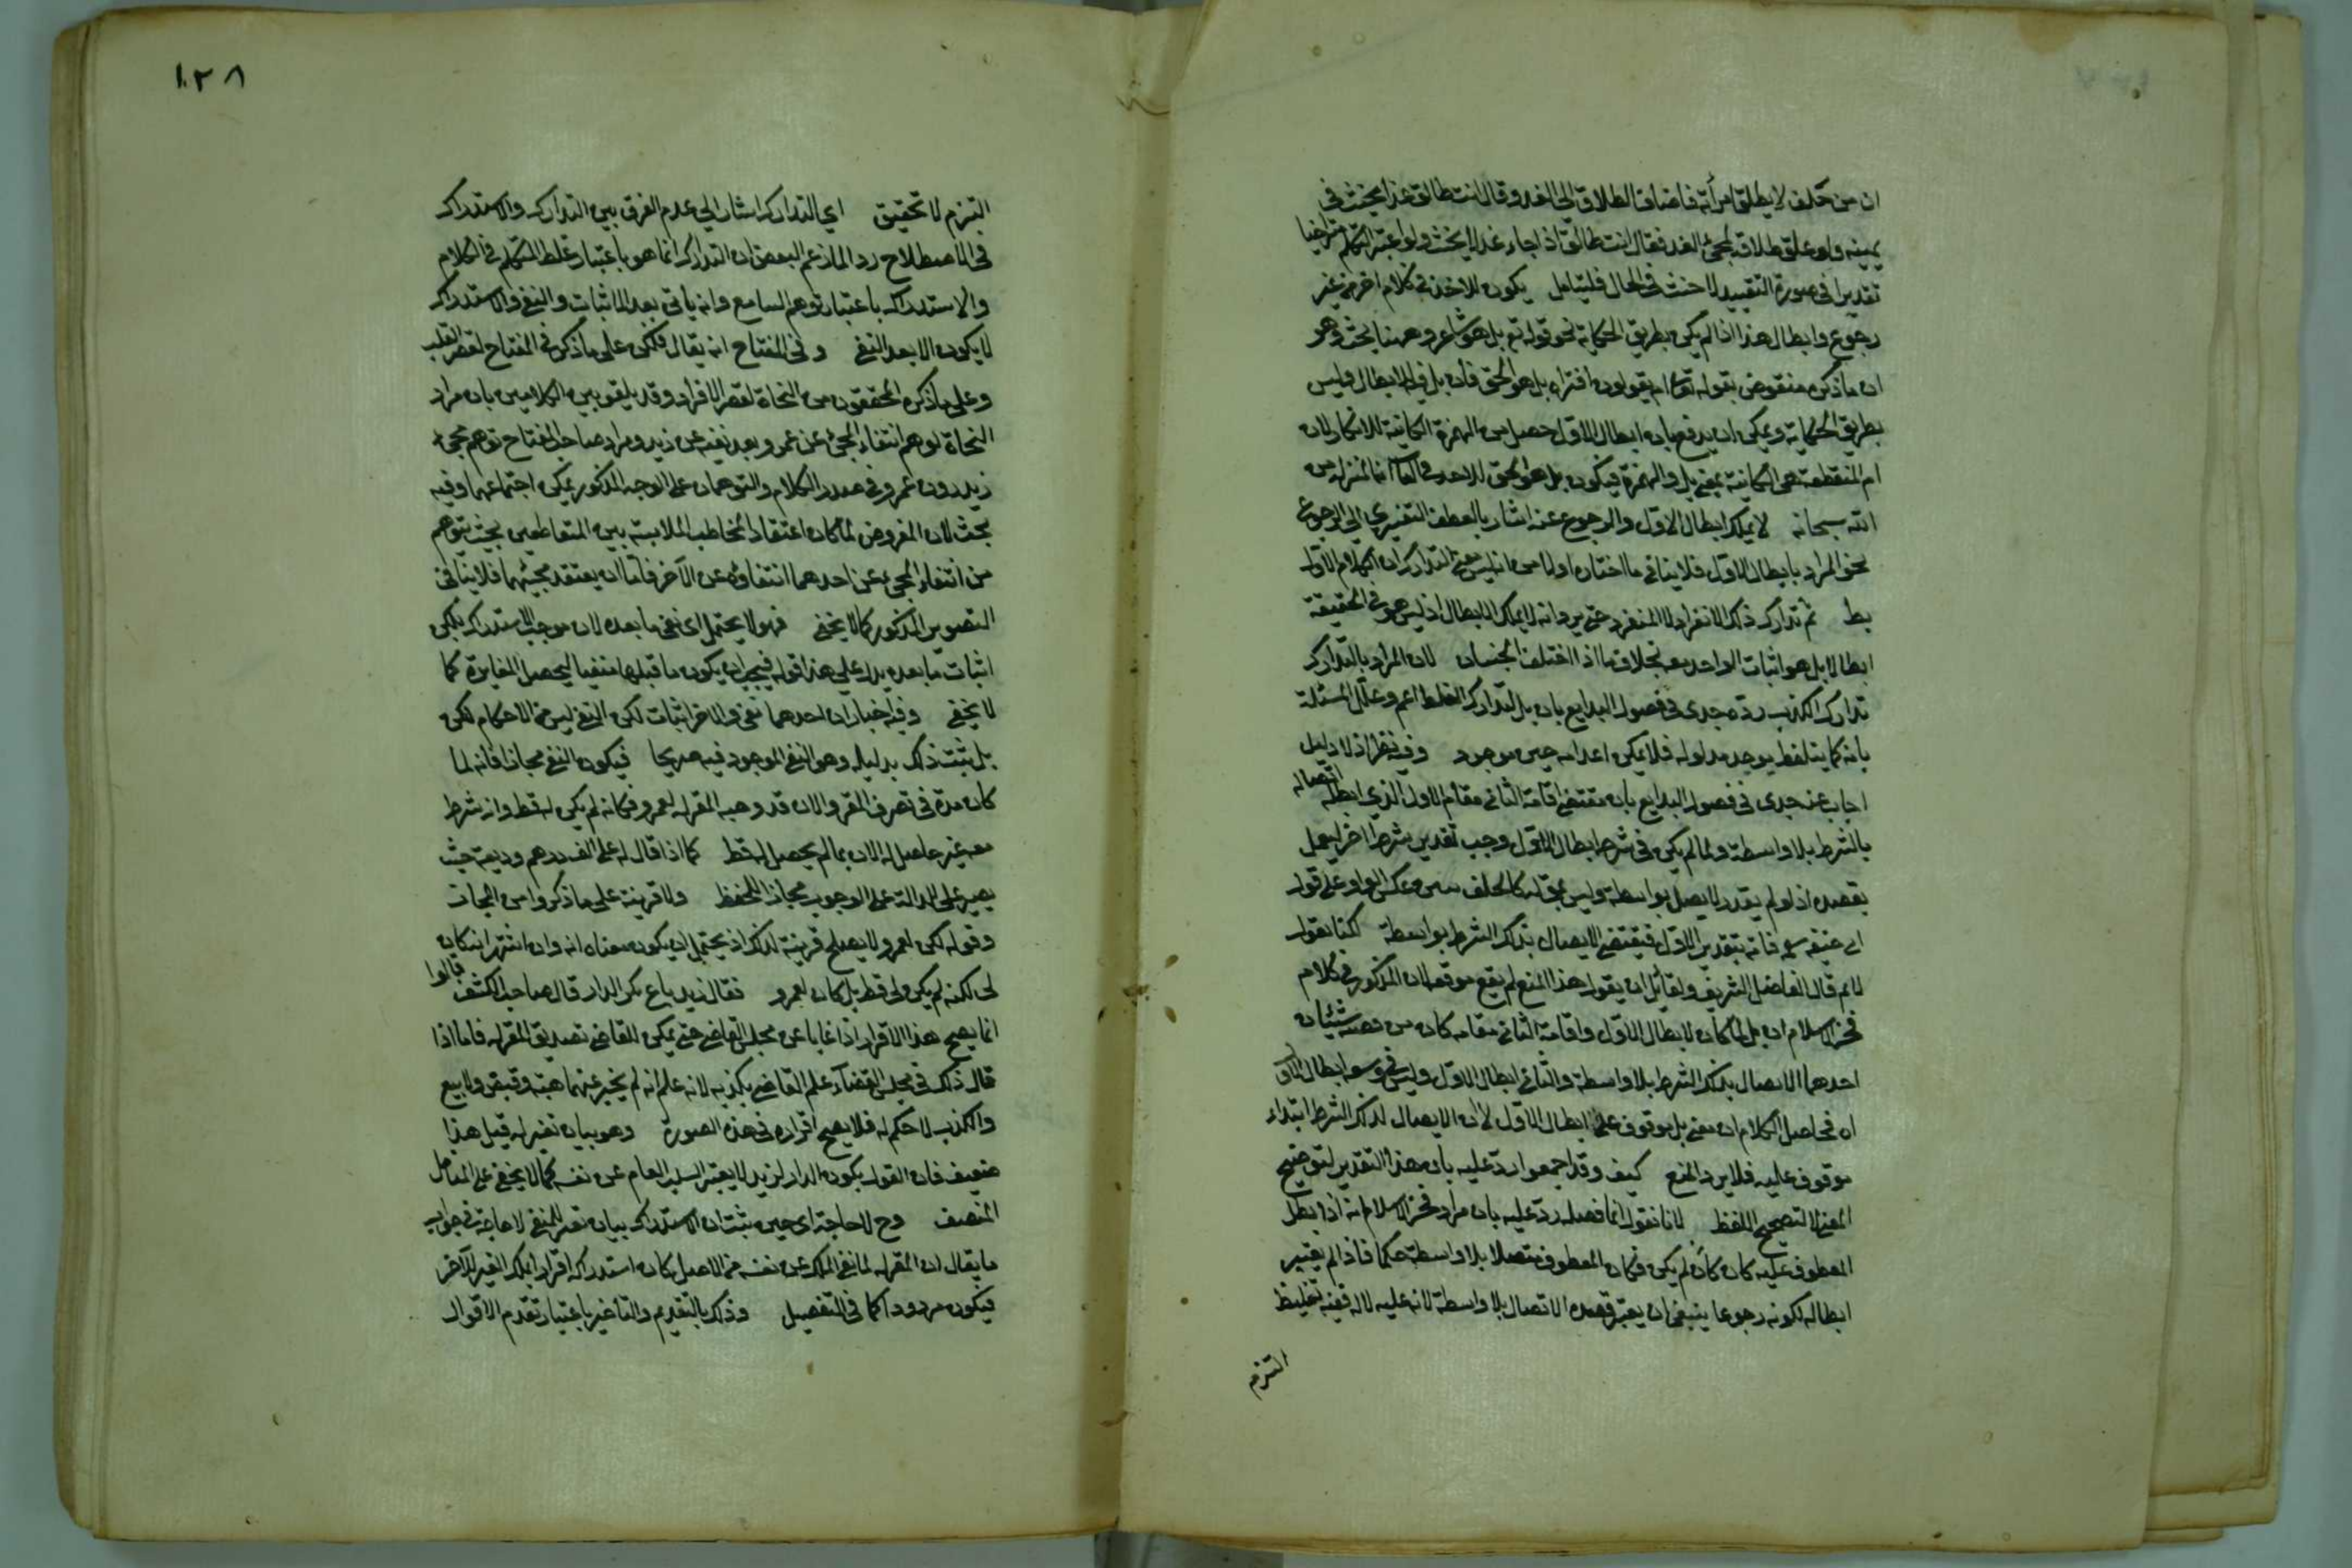 ان من حلف لا يطلق امرأته فاضاف الطلاق الى الغد وقال انت طالق غدا يحنث في
يمينه ولو علق طلاقه بمجئ الغد فقال انت طالق اذا جاء غد لا يحنث ولو اعتبر التكلم متراخيا
تقديرا في صورة التقييد لا حنث في الحال فليتامل يكون للاخذ في كلام اخر من غير
رجوع وابطال هذا اذا لم يكن بطريق الحكاية نحو قوله تع بل هو شاعر وههنا بحث وهو
ان ما ذكره منقوض بقوله تعا ام يقولون افتراه بل هو الحق فان بل فيه للابطال وليس
بطريق الحكاية ويمكن ان يدفع بان ابطال الاول حصل من الهمزة الكائنة للانكار لان
ام المنقطعة هي الكائنة بمعنى بل والهمزة فيكون بل هو الحق للاخذ في كلام اخر المنزل من
الله سبحانه لا يملك ابطال الاول والرجوع عنه اشار بالعطف التفسيري الى الرجوع
نحو المراد بابطال الاول فلا ينافي ما اختاره اولا من انه ليس معنى التدارك ان الكلام الاول
بط ثم تدارك ذلك الانفراد لا المنفرد حتى يرد انه لا يملك الابطال اذ ليس هو في الحقيقة
ابطالا بل هو اثبات الواحد معه بخلاف ما اذا اختلف الجنسان لان المراد بالتدارك
تدارك الكذب رده جدى في فصول البدايع بان بل لتدارك الغلط اعم وعلل المسئلة
بانه كما يتلفظ يوجد مدلوله فلا يمكن اعدامه حين موجود وفيه نظر اذ لا دليل
اجاب عنه جدى في فصول البدايع بان مقتضى اقامة الثاني مقام الاول الذي ابطله اتصاله
بالشرط بلا واسطة ولما لم يكن في شرط ابطال الاول وجب تقدير شرط اخر ليعمل
بقصده اذ لو لم يقدر لا يصل بواسطة وليس بمحله كالحلف بيمين وعكس الواو على قول
ابي حنيفه رحمه فانه بتقدير الاول فيقتضي الايصال بذلك الشرط بواسطة لكنا نقول
لا نم قال الفاضل الشريف ولقائل ان يقول هذا المنع لم يقع موقعه لان المذكور في كلام
فخر الاسلام ان بل لما كان لابطال الاول واقامة الثاني مقامه كان من قصده شيئان
احدهما الاتصال بذلك الشرط بلا واسطة والثاني ابطال الاول وليس في وسعه ابطال الاول
اه فحاصل الكلام ان معنى بل موقوف على ابطال الاول لا ان الاتصال لذلك الشرط ابتداء
موقوف عليه فلا يرد المنع كيف وقد اجمعوا رد عليه بان هذا التقدير لتوضيح
المعنى لا لتصحيح اللفظ لانا نقول انما فصله رد عليه بان مراد فخر الاسلام انه اذا بطل
المعطوف عليه كان كان لم يكن فكان المعطوف متصلا بلا واسطة حكما فاذا لم يعتبر
ابطاله لكونه رجوعا ينبغي ان يعتبر قصده الاتصال بلا واسطة لانه عليه لا له ففيه تغليظ
التزم
١٢٨
التزم لا تحقيق اي التدارك اشار الى عدم الفرق بين التدارك والاستدراك
في الاصطلاح رد الما زعم البعض ان التدارك انما هو باعتبار غلط المتكلم في الكلام
والاستدراك باعتبار توهم السامع وانه ياتي بعد الاثبات والنفي والاستدراك
لا يكون الا بعد النفي وفي المفتاح انه يقال فلكن على ما ذكر في المفتاح لقصر القلب
وعلى ما ذكره المحققون من النحاة لقصر الافراد وقد يلفق بين الكلامين بان مراد
النحاة توهم انتفاء المجئ عن عمرو بعد نفيه عن زيد ومراد صاحب المفتاح توهم مجئ
زيد دون عمرو في صدر الكلام والتوهمان على الوجه المذكور يمكن اجتماعهما وفيه
بحث لان المفروض لما كان اعتقاد المخاطب الملابسة بين المتعاطفين بحيث يتوهم
من انتفاء المجئ عن احدهما انتفاؤه عن الآخر فاما ان يعتقد مجيئهما فلا ينافي
التصوير المذكور كما لا يخفى فهو لا يحتمل اي نفي ما بعده لان موجب الاستدراك بلكن
اثبات ما بعده يدل على هذا قوله فيجب ان يكون ما قبلها منفيا ليحصل المغايرة كما
لا يخفى وفيه اخبار ان احدهما نفي والاخر اثبات لكن النفي ليس من الاحكام لكن
بل ثبت ذلك بدليله وهو النفي الموجود فيه صريحا فيكون النفي مجازا فانه لما
كان مدة في تصرف المقر والان قد وهبه المقر له لعمرو فكانه لم يكن له قط واذ شرط
معه غير حاصل له الان بما لم يحصل له قط كما اذا قال له على الف درهم وديعة حيث
يصير على للدلالة على الوجوب مجازا للحفظ ولا قرينة على ما ذكروا من المجاز
وقوله لكن لعمرو لا يصلح قرينة لذلك اذ يحتمل ان يكون معناه انه وان اشتهر انه كان
لى لكنه لم يكن لي قط بل كان لعمرو فقال زيد باع بكر الدار قال صاحب الكشف قالوا
انما يصح هذا الاقرار اذا غابا عن مجلس القاضي حتى يمكن للقاضي تصديق المقر له فاما اذا
قال ذلك في مجلس القضاء علم القاضي بكذبه لانه علم انه لم يجر بينهما هبة وقبض ولا بيع
والكذب لا حكم له فلا يصح اقراره في هذه الصورة وهو بيان تغير له قيل هذا
ضعيف فان القول بكون الدار لزيد لا يعتبر السلب العام عن نفسه كما لا يخفى على المتامل
المنصف وح لا حاجة اى حين ثبت ان الاستدراك بيان تغير للنفي لا حاجة في جواب
ما يقال ان المقر له لما نفى الملك عن نفسه من الاصل كان استدراكه اقرار بملك الغير للآخر
فيكون مردودا كما في التفصيل وذلك بالتقديم والتاخير باعتبار تقدم الاقوال